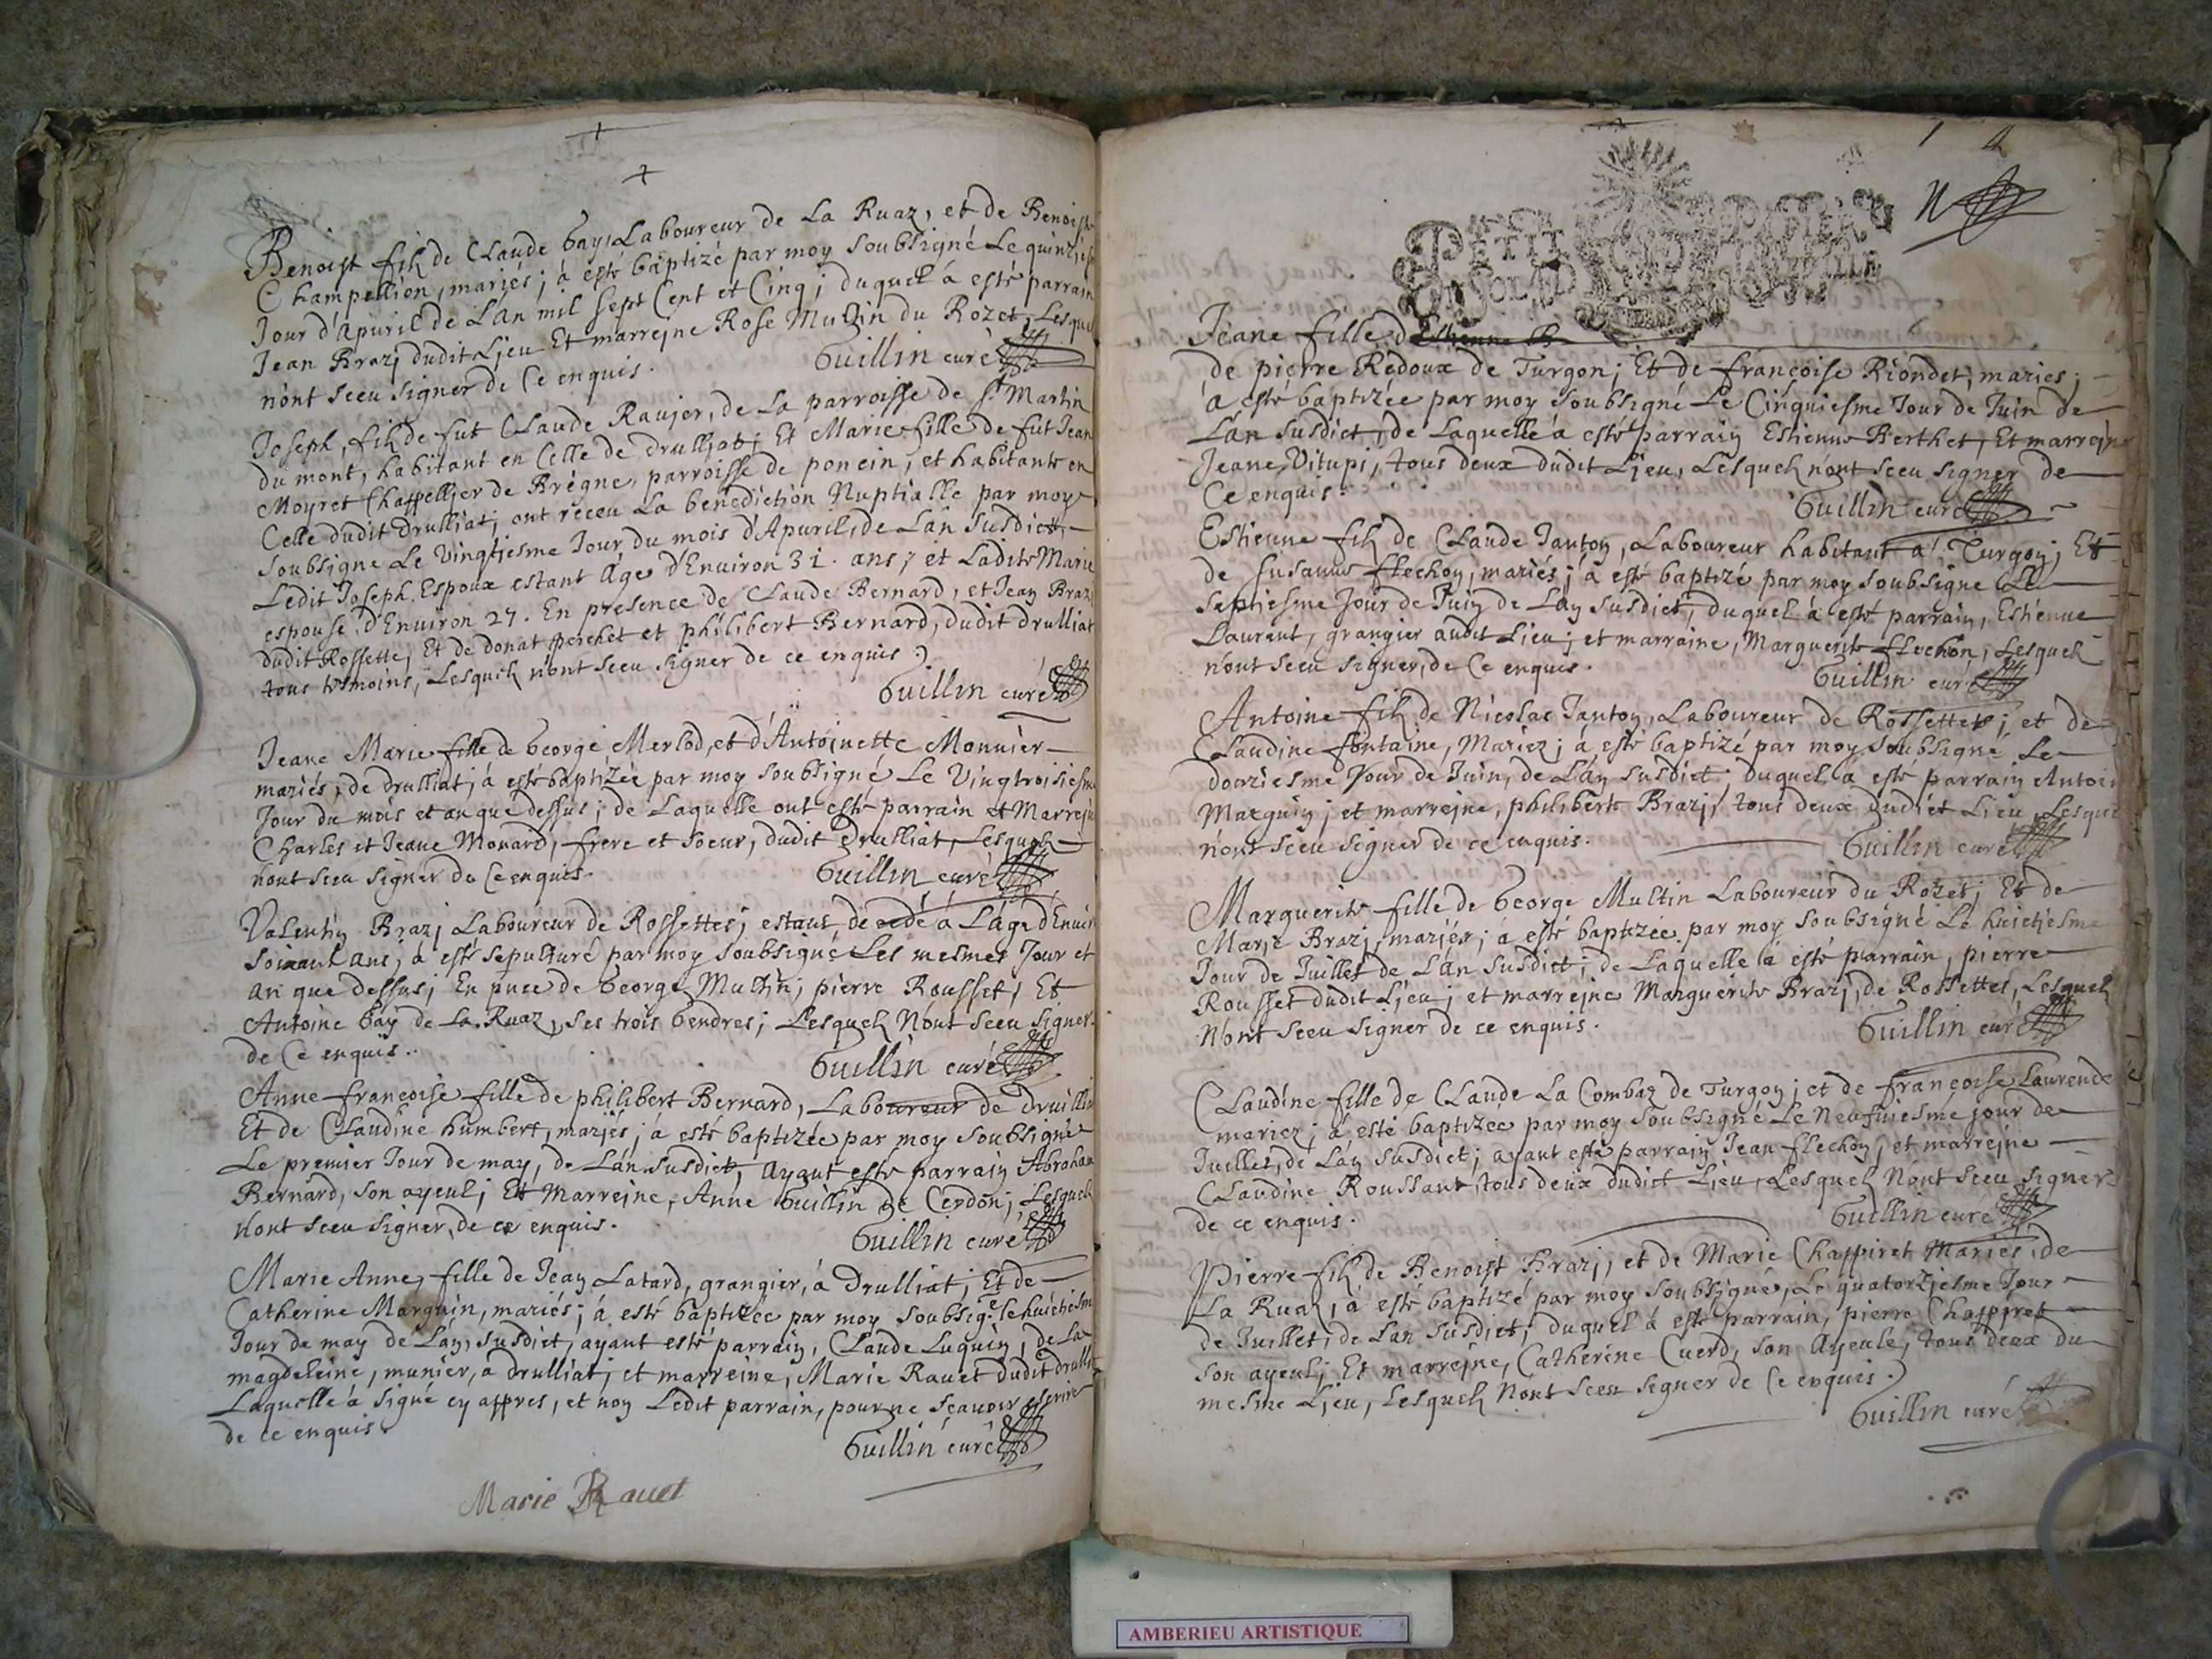 Benoist fils de Claude Gay, Laboureur de La Ruaz, et de Benoiste
Champellion, mariés; à esté baptizé par moy soubsigné Le quinziesme
Jour d'Apuril de L'an mil sept Cent et Cinq; duquel à esté parrain
Jean Brazj dudit Ljeu Et marrejne Rose Multin du Rozet, Lesquels
n'ont sceu signer de Ce enquis.
Guillin curé
Joseph, fils de fut Claude Raujer, de La parroisse de St Martin
du mont, habitant en Celle de drulljat; Et Marie fille de fut Jean
Moyret Chappelljer de Brègne, parroisse de poncin, et habitante en
Celle dudit drulliat; ont receu La benediction Nuptialle par moy
soubsigné Le Vingtiesme Jour du mois d'Apuril, de L'an susdict,
Ledit Joseph Espoux estant Agé d'Enuiron 31. ans; et Ladite Marie
espouse, d'Enuiron 27. En presence de Claude Bernard, et Jean Brazj
dudit Rossette, Et de donat perchet et philibert Bernard, dudit drulliat
tous tesmoins, Lesquels n'ont sceu signer de ce enquis.
Guillin curé
Jeane Marie fille de George Merlod, et d'Antoinette Monnier
mariés, de drulliat; à esté baptizée par moy soubsigné Le Vingtroisiesme
Jour du mois et an que dessus; de Laquelle ont esté parrain et Marrejne
Charles et Jeane Monard, frere et soeur, dudit Drulliat, Lesquels
n'ont sceu signer de Ce enquis.
Guillin curé
Valentin Brazj Laboureur de Rossettes; estant décedé à L'âge d'Enuiron
soixant ans; à esté sepulturé par moy soubsigné Les mesmes Jour et
an que dessus; En pnce de George Multin; pierre Rousset, Et
Antoine Gay de La Ruaz, ses trois Gendres; Lesquels N'ont sceu signer
de Ce enquis.
Guillin curé
Anne francoise fille de philibert Bernard, Laboureur de Drullia
Et de Claudine humbert, mariés; à esté baptizée par moy soubsigné
Le premier Jour de may, de L'an susdict, ayant esté parrain Abraham
Bernard, son ayeul; Et Marrejne, Anne Guillin de Cerdon; Lesquels
n'ont sceu signer, de ce enquis.
Guillin curé
Marie Anne, fille de Jean Latard, grangier, à Drulliat; Et de
Catherine Marguin, mariés; à esté baptizée par moy soubsig.é le huictiesme
Jour de may de L'an, susdict, ayant esté parrain, Claude Luquin, de La
magdeleine, munier, à drulliat; et marreine, Marie Rauet dudit drulliat
Laquelle à signé cy appres, et non Ledit parrain, pour ne sçauoir escrire
de ce enquis.
Guillin curé
Marie Rauet
PETIT PAPIER
UN SOL
Jeane fille d Estienne R
de pierre Redoux de Turgon; Et de françoise Riondet, mariés;
à esté baptizée par moy soubsigné Le Cinquiesme Jour de Juin de
L'an susdict, de Laquelle à esté parrain Estienne Berthet, Et marrejne
Jeane Vitupi, tous deux dudit Ljeu, Lesquels n'ont sceu signer de
Ce enquis.
Guillin curé
Estienne fils de Claude Janton, Laboureur habitant à Turgon; Et
de Susanne flechon, mariés; à esté baptizé par moy soubsigné Le
septiesme Jour de Juin de L'an susdict, duquel à esté parrain, Estienne
Laurent, grangier audit Lieu; et marraine, Marguerite flechon, Lesquels
n'ont sceu signer, de Ce enquis.
Guillin curé
Antoine fils de Nicolas Janton, Laboureur de Rossettes; et de
Claudine fontaine, Mariez; à esté baptizé par moy soubsigné Le
douziesme Jour de Juin, de L'an susdict; duquel à esté parrain Antoine
Marguin; et marrejne, philiberte Brazj, tous deux dudict Lieu, Lesquels
n'ont sceu signer de ce enquis.
Guillin curé
Marguerite fille de George Multin Laboureur du Rozet; Et de
Marie Brazj, mariés; à esté baptizée par moy soubsigné Le huictiesme
Jour de Juillet de L'an susdict; de Laquelle à esté parrain, pierre
Rousset dudit Ljeu; et marrejne Marguerite Brazj, de Rossettes, Lesquels
N'ont sceu signer de ce enquis.
Guillin curé
Claudine fille de Claude La Combaz de Turgon; et de françoise Laurende
mariez; à esté baptizée par moy soubsigné Le Neufuiesme jour de
Juillet, de L'an susdict; ayant esté parrain Jean flechon, et marrejne
Claudine Roussant, tous deux dudict Ljeu, Lesquels N'ont sceu signer
de ce enquis.
Guillin curé
Pierre fils de Benoist Brazj, et de Marie Chappiret Mariés, de
La Ruaz, à esté baptizé par moy soubsigné, Le quatorziesme Jour
de Juillet, de L'an susdict; duquel à esté parrain, pierre Chappiret
son ayeul; Et marrejne, Catherine Cuerd, son Ayeule, tous deux du
mesme Ljeu, Lesquels N'ont sceu signer de Ce enquis.
Guillin curé
AMBERIEU ARTISTIQUE